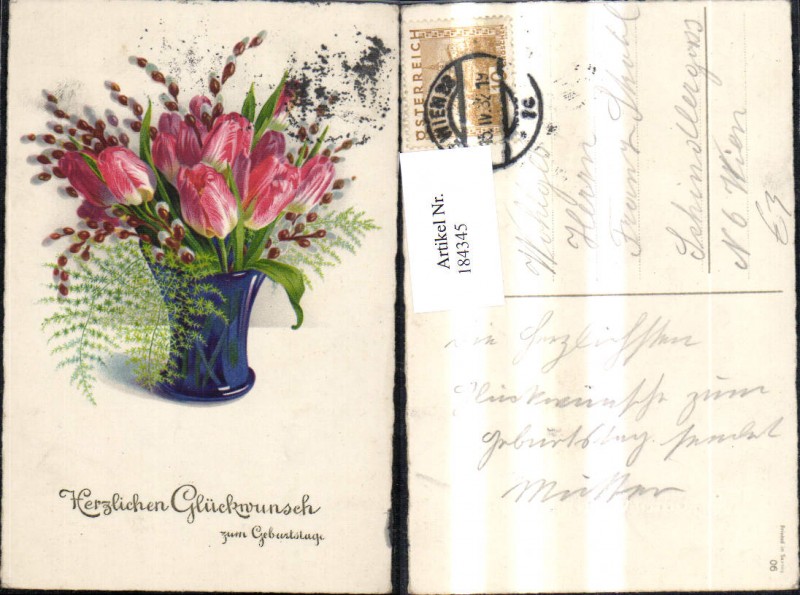 Herzlichen Glückwunsch
zum Geburtstage
ÖSTERREICH
WIEN
IV 32
Artikel Nr.
184345
Wohlgb
Herrn
Franz
Schindlergass
N 6 Wien
Die herzlichsten
Glückwünsche zum
Geburtstag sendet
Mutter
90